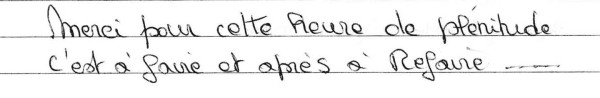 Merci pour cette heure de plénitude
c'est à faire et après à Refaire ......